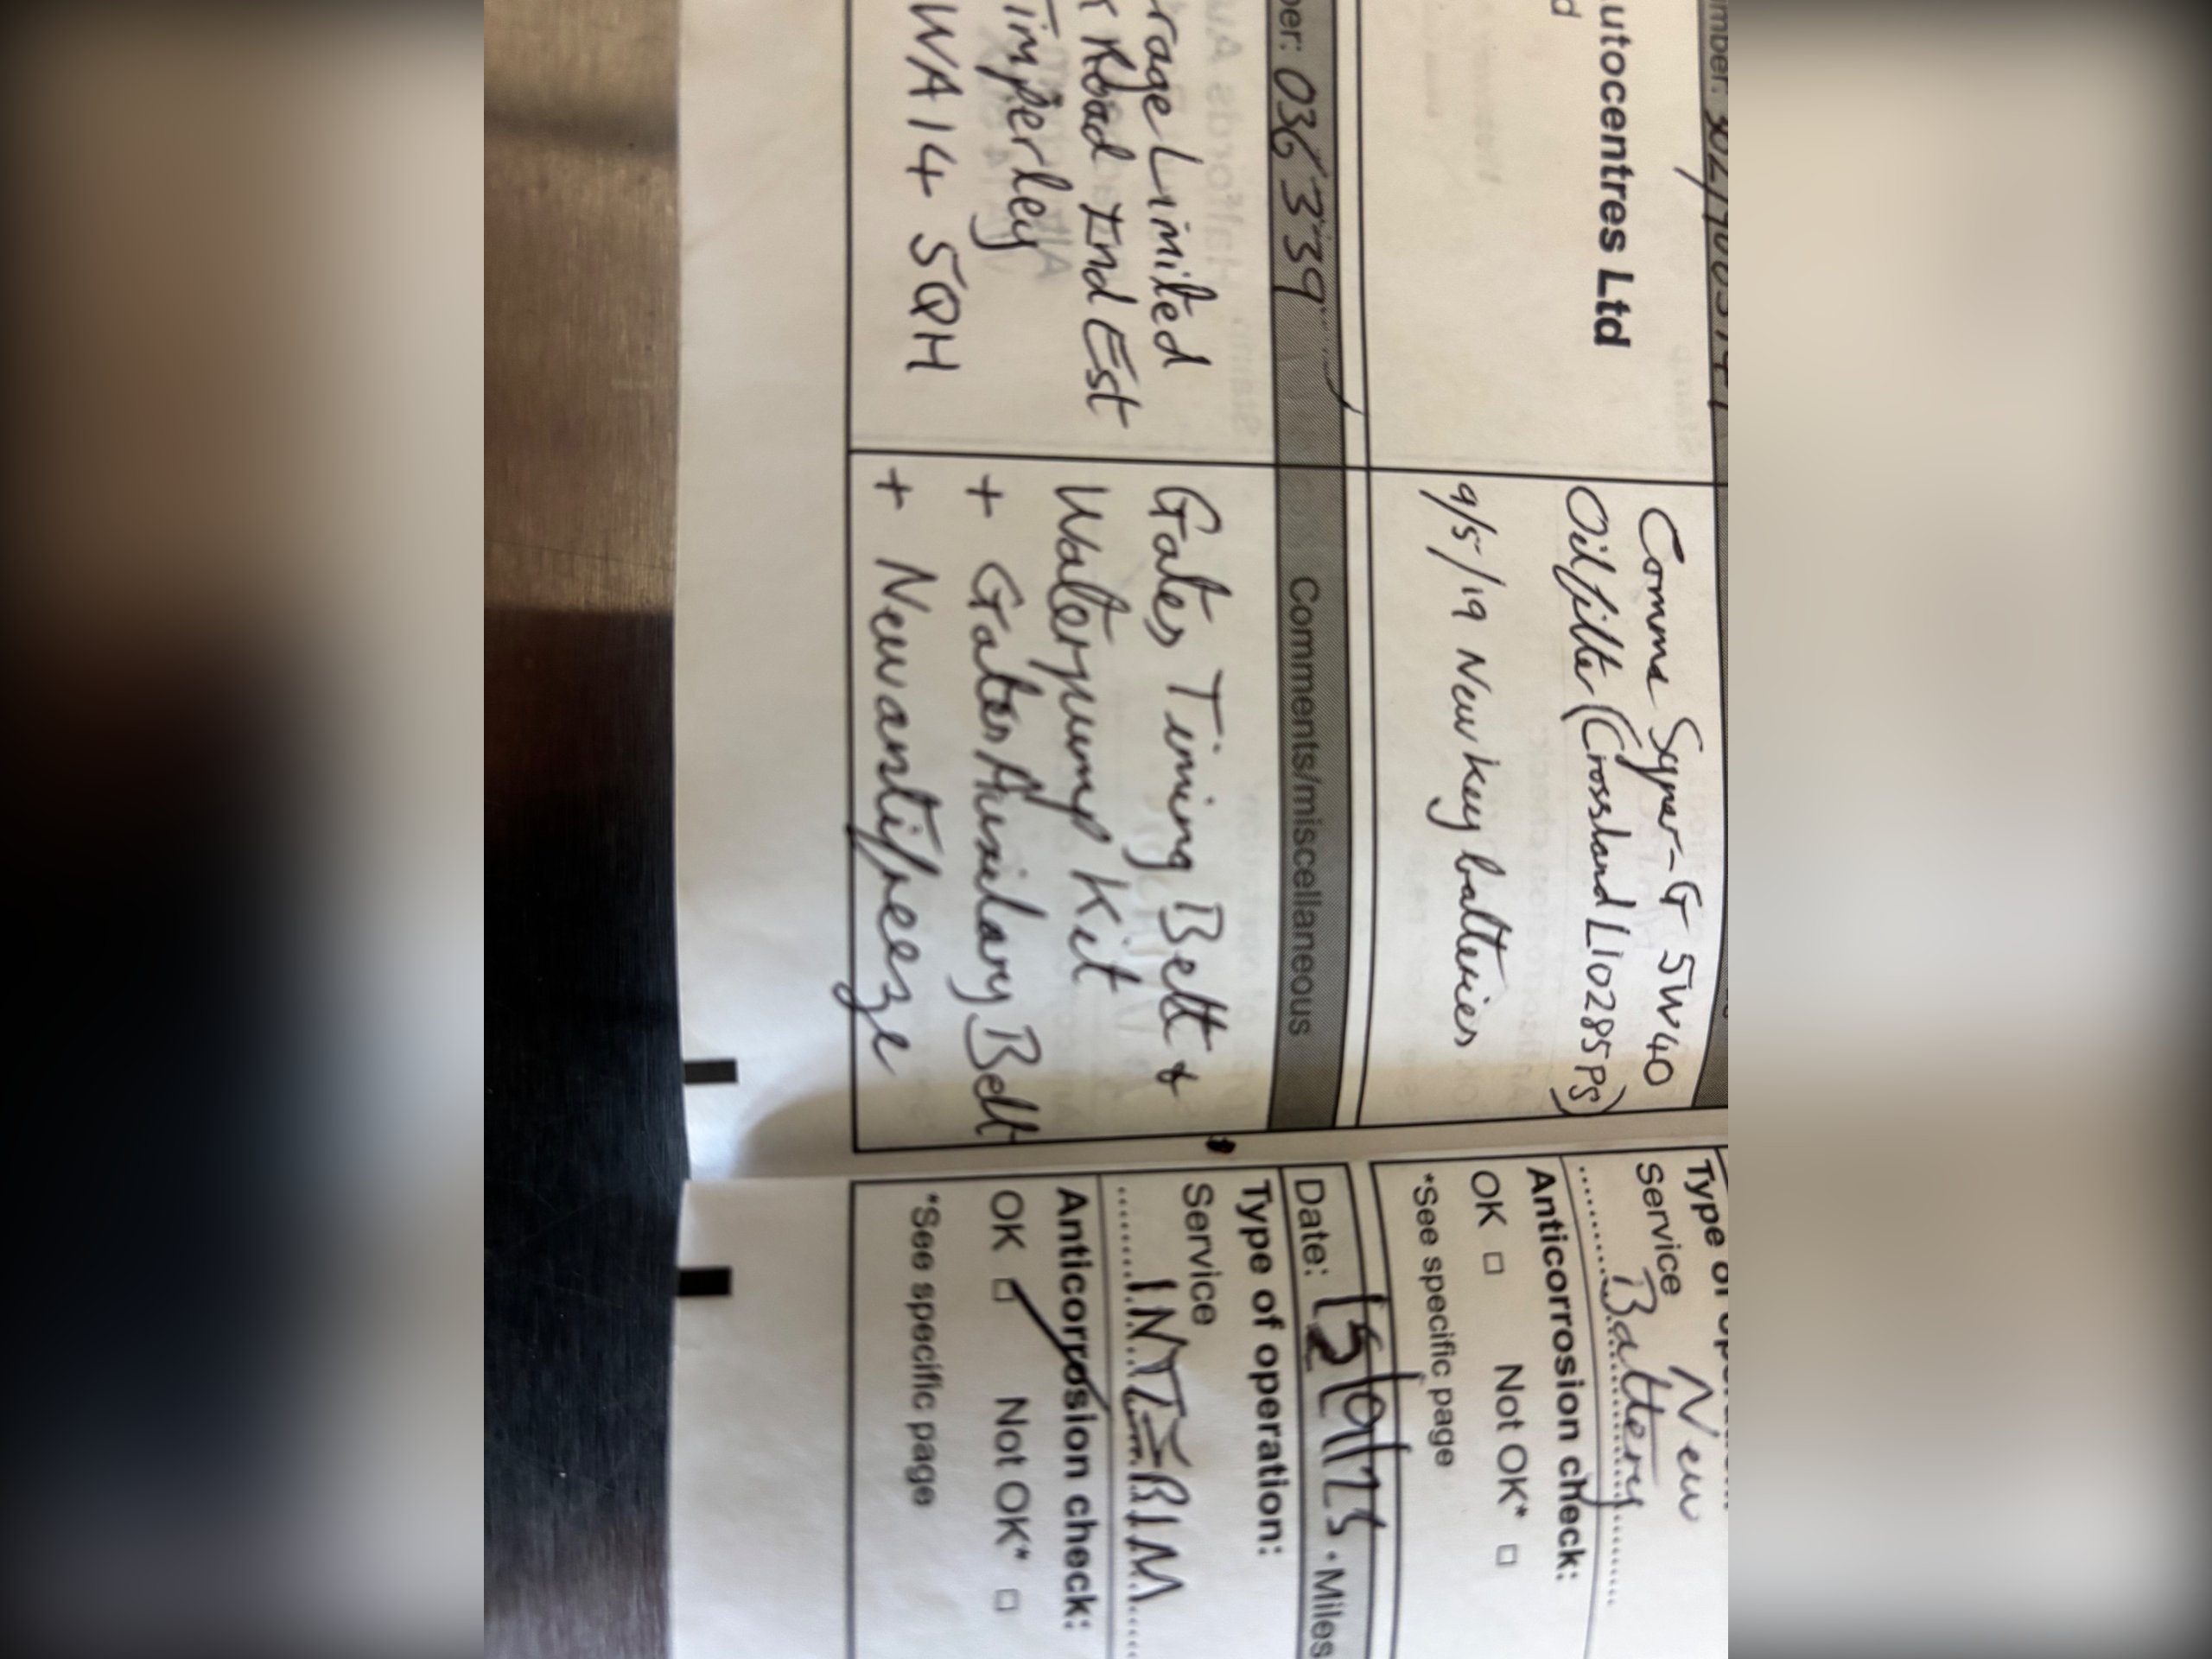 Autocentres Ltd
Comma Syner-G 5W40
Oil filter (Crossland L10285PS)
9/5/19 New key batteries
036339
Comments/miscellaneous
Limited
Road Ind Est
Timperley
WA14 5QH
Gates Timing Belt &
Waterpump Kit
+ Gates Auxilary Belt
+ New antifreeze
Service New
Battery
Anticorrosion check:
OK □ Not OK* □
*See specific page
Date: 15/9/25 · Miles
Type of operation:
Service
INTERIM
Anticorrosion check:
OK □ Not OK* □
*See specific page